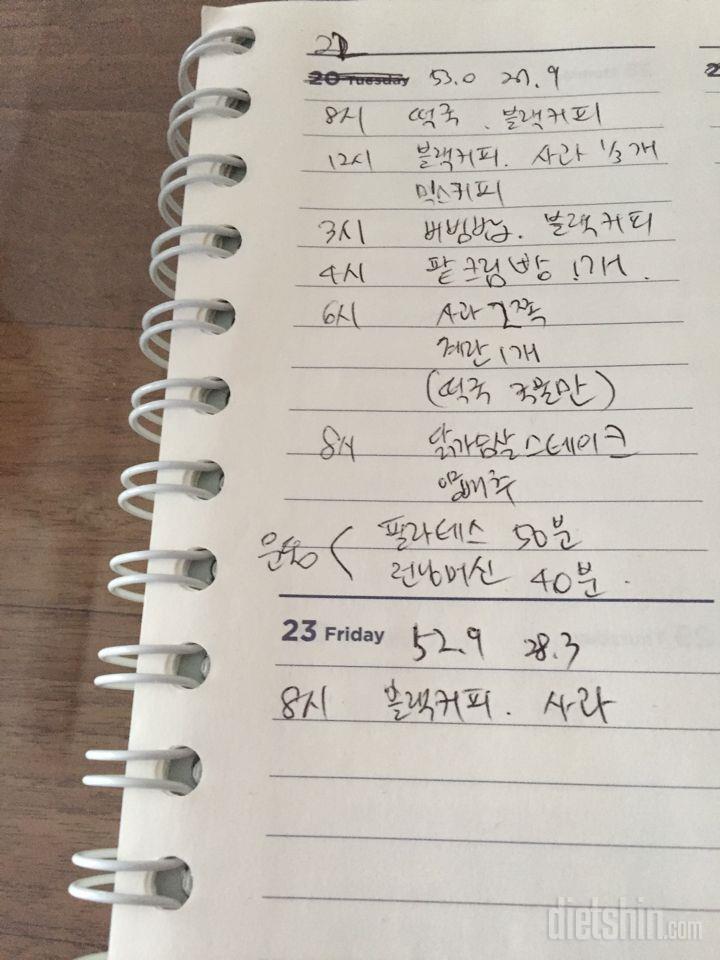 22
20 Tuesday 53.0 27.9
8시 떡국 . 블랙커피
12시 블랙커피. 사과 1/3개
믹스커피
3시 비빔밥. 블랙커피
4시 팥크림빵 1개.
6시 사과 2쪽
계란 1개
(떡국 국물만)
8시 닭가슴살 스테이크
양배추
운동 ( 필라테스 50분
런닝머신 40분.
23 Friday 52.9 28.3
8시 블랙커피. 사과
dietshin.com